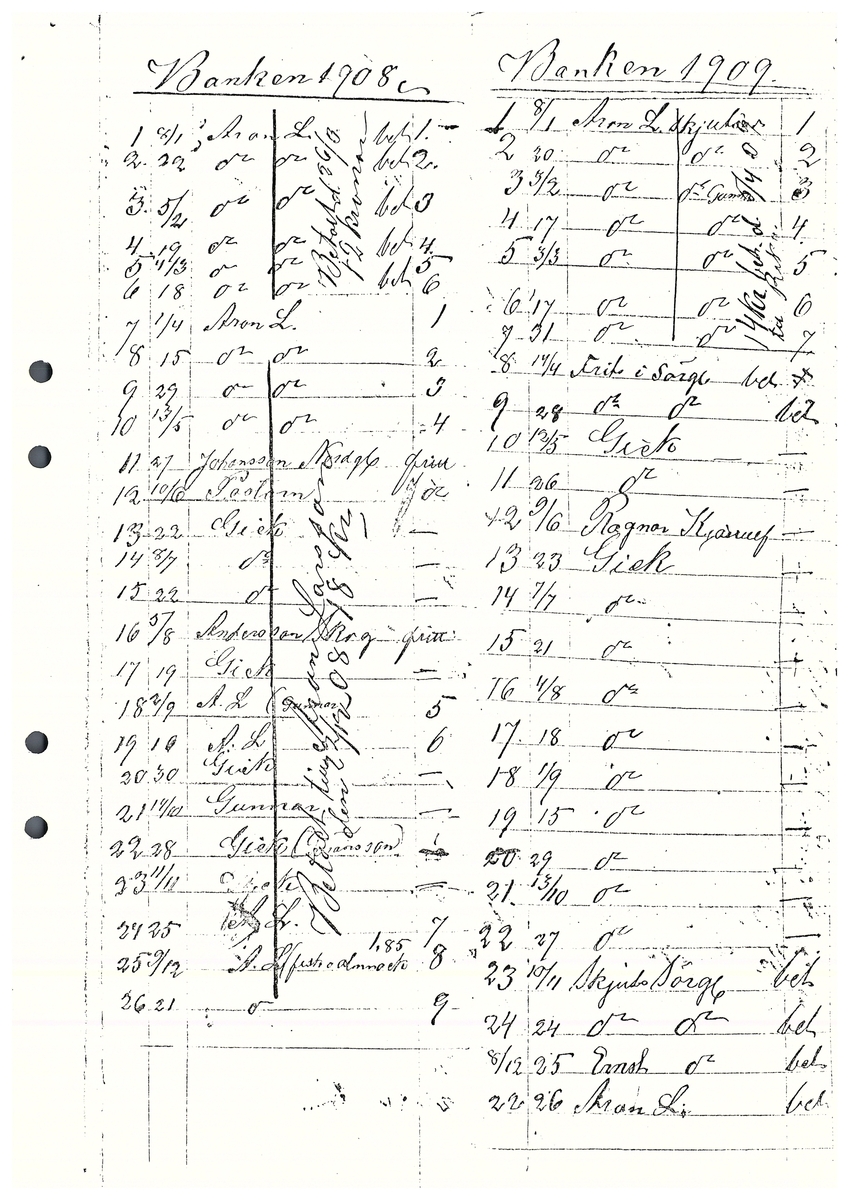 Banken 1908
1 8/1 Aron L. bet 1.
2. 22 do do bet 2.
3. 5/2 do do bet 3
4 19 do do bet 4
5 4/3 do do bet 5
6 18 do do 6
Betalt d 26/3
12 kronor
7 1/4 Aron L. 1
8 15 do do 2
9 29 do do 3
10 13/5 do do 4
11 27 Johansson fritt
12 10/6 do
13 22 Gick —
14 8/7 do —
15 22 do —
16 5/8 Andersson Skog fritt
17 19 Gick —
18 2/9 A. L (Gunnar 5
19 16 A. L 6
20 30 Gick —
21 14/10 Gunnar —
22 28 Gick
23 11/11 —
24 25 A. L. 7
1,85
25 9/12 A. L 8
26 21 do 9
Betalt Aron Larsson
den 08 18 kr
Banken 1909.
1 8/1 Aron L. skjuts 1
2 20 do do 2
3 3/2 do do Gunnar 3
4 17 do do 4
5 3/3 do do 5
6 17 do do 6
7 31 do do 7
14 Kr bet. d. 5/4 09
8 14/4 Frits i Sörgå bet
9 28 do do bet
10 12/5 Gick —
11 26 do —
12 9/6 Ragnar —
13 23 Gick —
14 7/7 do —
15 21 do —
16 4/8 do —
17. 18 do —
18 1/9 do —
19 15 do —
20 29 do —
21. 13/10 do —
22 27 do —
23 10/11 Skjuts Sörgå bet
24 24 do do bet
8/12 25 Ernst do bet
22 26 Aron L. bet